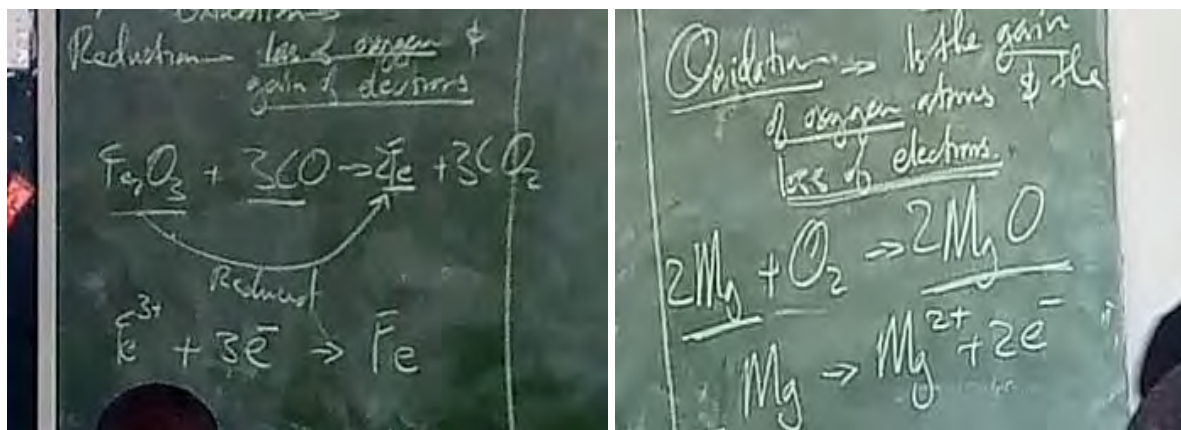 Oxidation
Reduction — loss of oxygen &
gain of electrons
Fe₂O₃ + 3CO → 2Fe + 3CO₂
Reduced
Fe³⁺ + 3e⁻ → Fe
Oxidation → Is the gain
of oxygen atoms & the
loss of electrons.
2Mg + O₂ → 2MgO
Mg → Mg²⁺ + 2e⁻